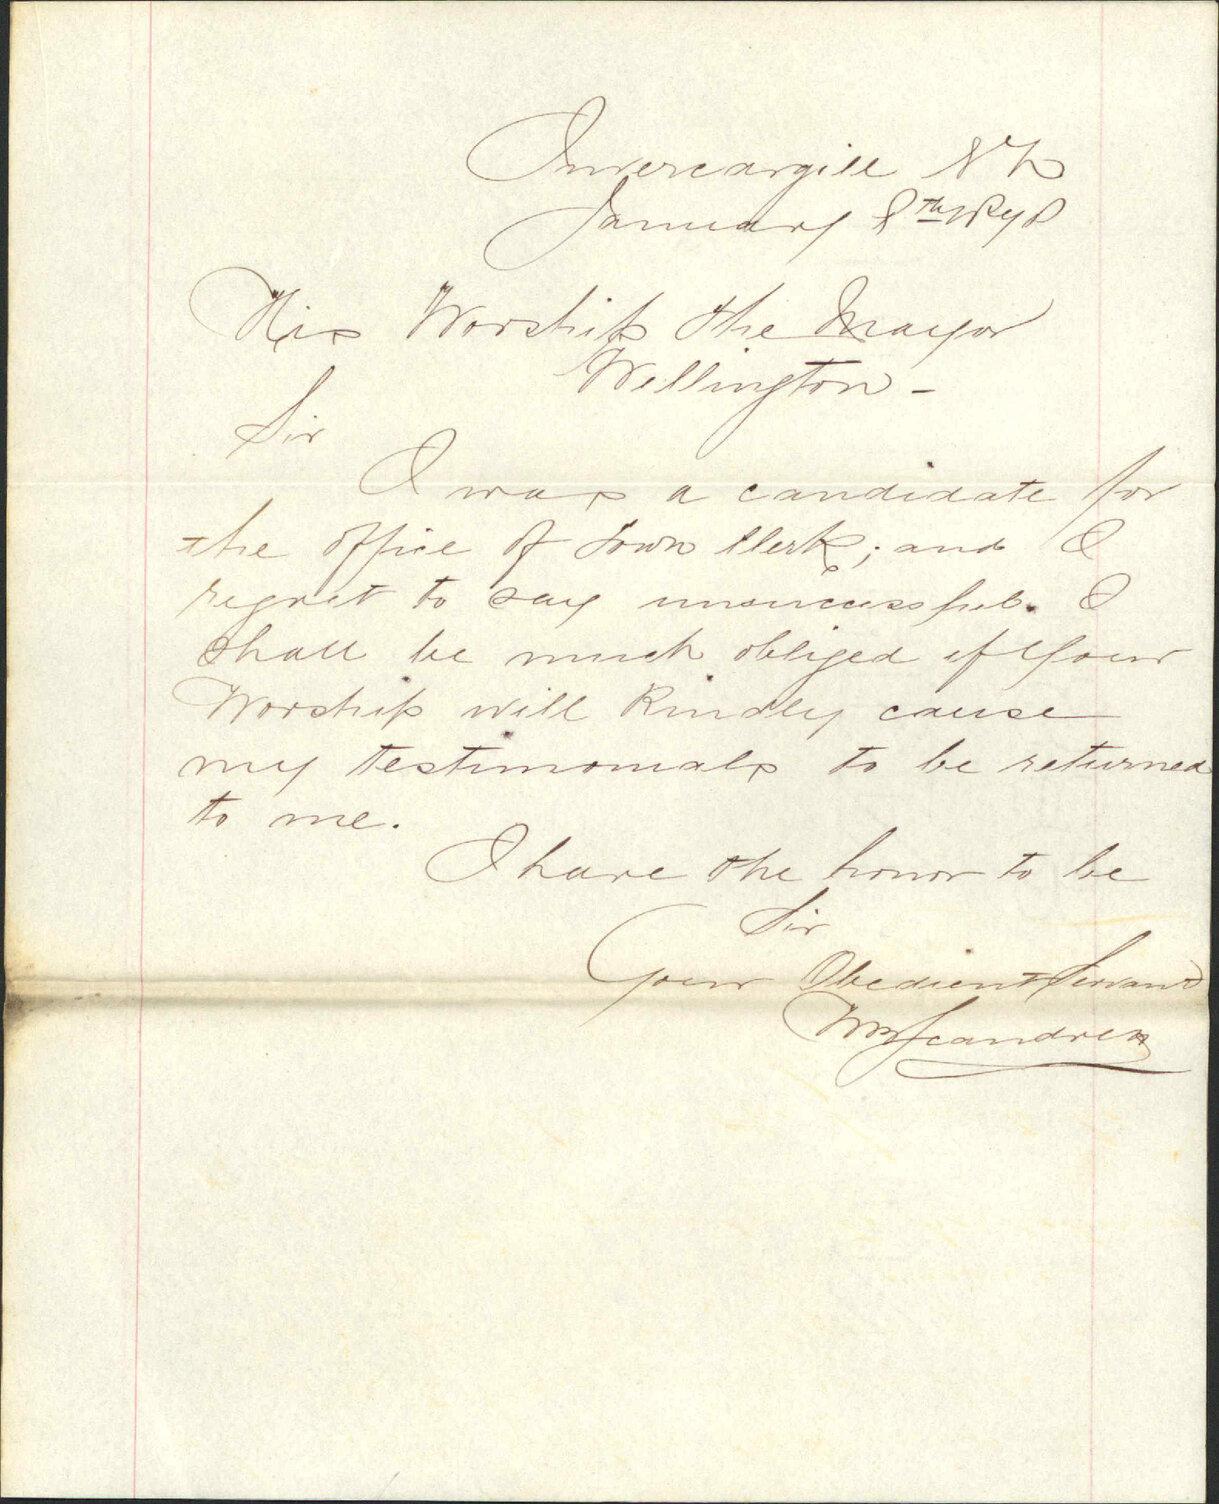 Invercargill NZ
January 8th 1878
His Worship the Mayor
Wellington -
Sir
I was a candidate for
the office of Town Clerk; and I
regret to say unsuccessful. I
shall be much obliged if Your
Worship will Kindly cause
my testimonials to be returned
to me.
I have the honor to be
Sir
Your Obedient Servant
Wm